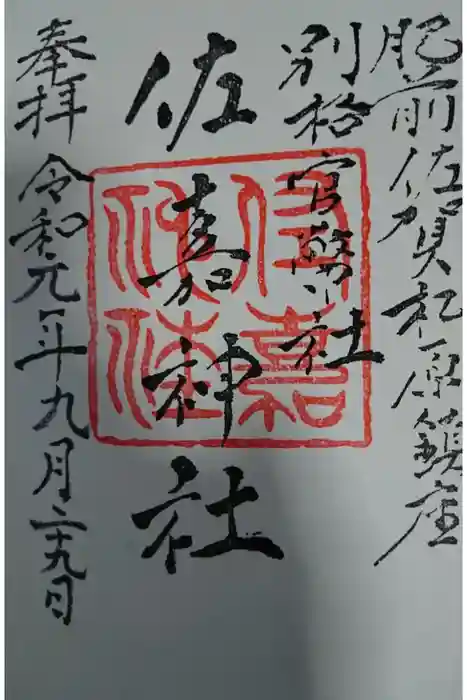 肥前佐賀松原鎮座
別格官幣社
佐嘉神社
奉拝 令和元年九月二十九日